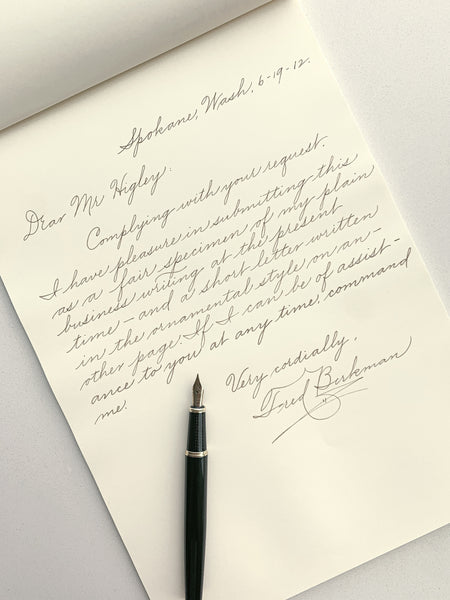 Spokane, Wash, 6-19-12.
Dear Mr Higley:
Complying with your request.
I have pleasure in submitting this
as a fair specimen of my plain
business writing at the present
time - and a short letter written
in the ornamental style on an-
other page. If I can be of assist-
ance to you at any time, command
me.
Very cordially,
Fred Berkman